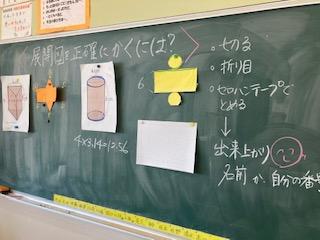 展開図を正確にかくには?
・切る
・折り目
・セロハンテープで
とめる
↓
出来上がり
名前 か 自分の番号
6
4×3.14=12.56